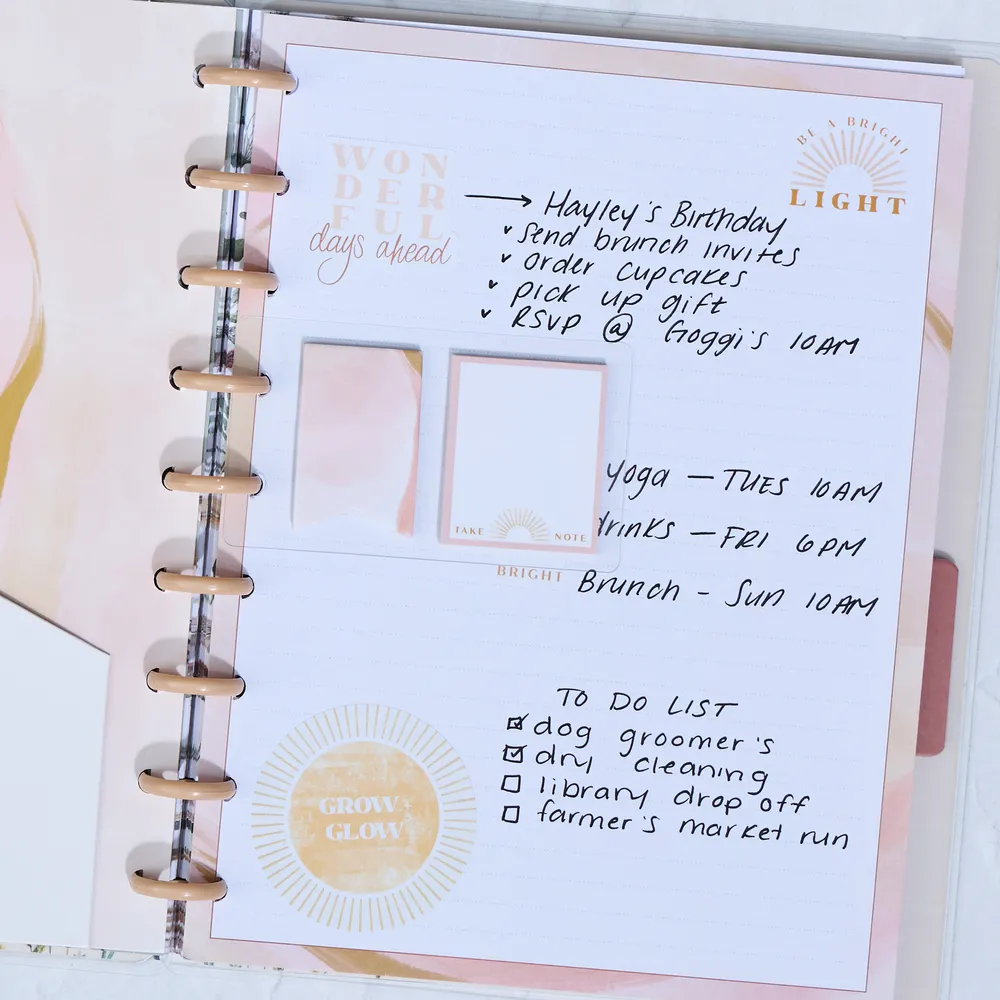 BE A BRIGHT
LIGHT
WON
DER
FUL
days ahead
Hayley's Birthday
send brunch invites
order cupcakes
pick up gift
RSVP @ Goggi's 10AM
yoga — TUES 10AM
drinks — FRI 6PM
TAKE NOTE
BRIGHT
Brunch - Sun 10AM
TO DO LIST
dog groomer's
dry cleaning
library drop off
farmer's market run
GROW
GLOW